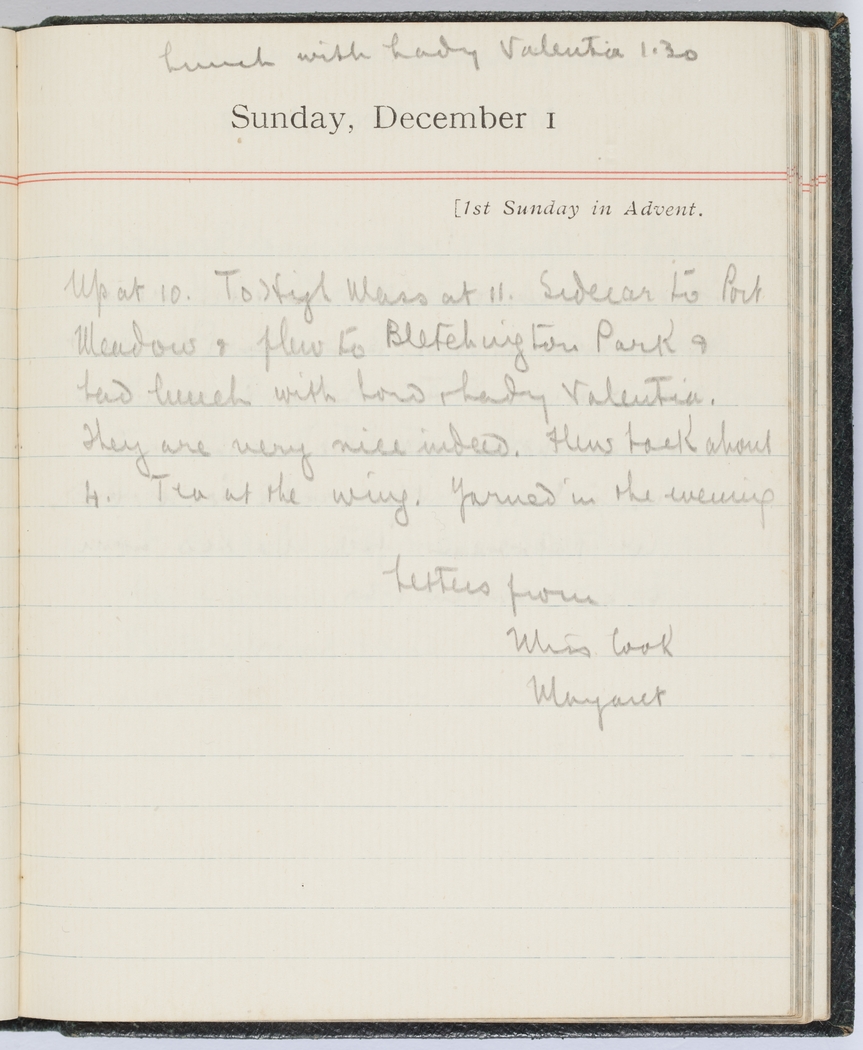 Lunch with Lady Valentia 1.30
Sunday, December 1
[1st Sunday in Advent.
Up at 10. To High Mass at 11. Sidecar to Port
Meadow & flew to Bletchington Park &
had lunch with Lord & Lady Valentia.
They are very nice indeed. Flew back about
4. Tea at the wing. Yarned in the evening
Letters from
Miss Cook
Margaret